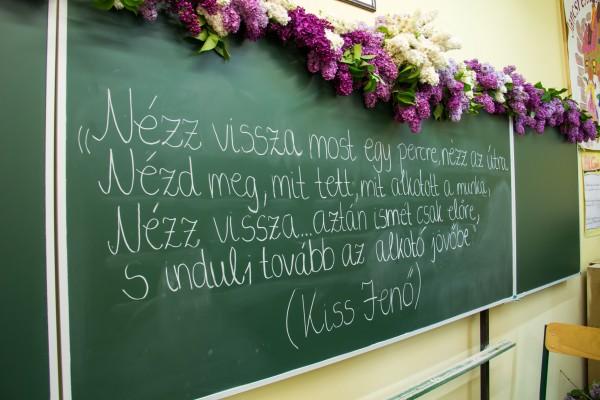 „Nézz vissza most egy percre, nézz az útra
Nézd meg, mit tett, mit alkotott a munka,
Nézz vissza...aztán ismét csak előre,
S indulj tovább az alkotó jövőbe"
(Kiss Jenő)